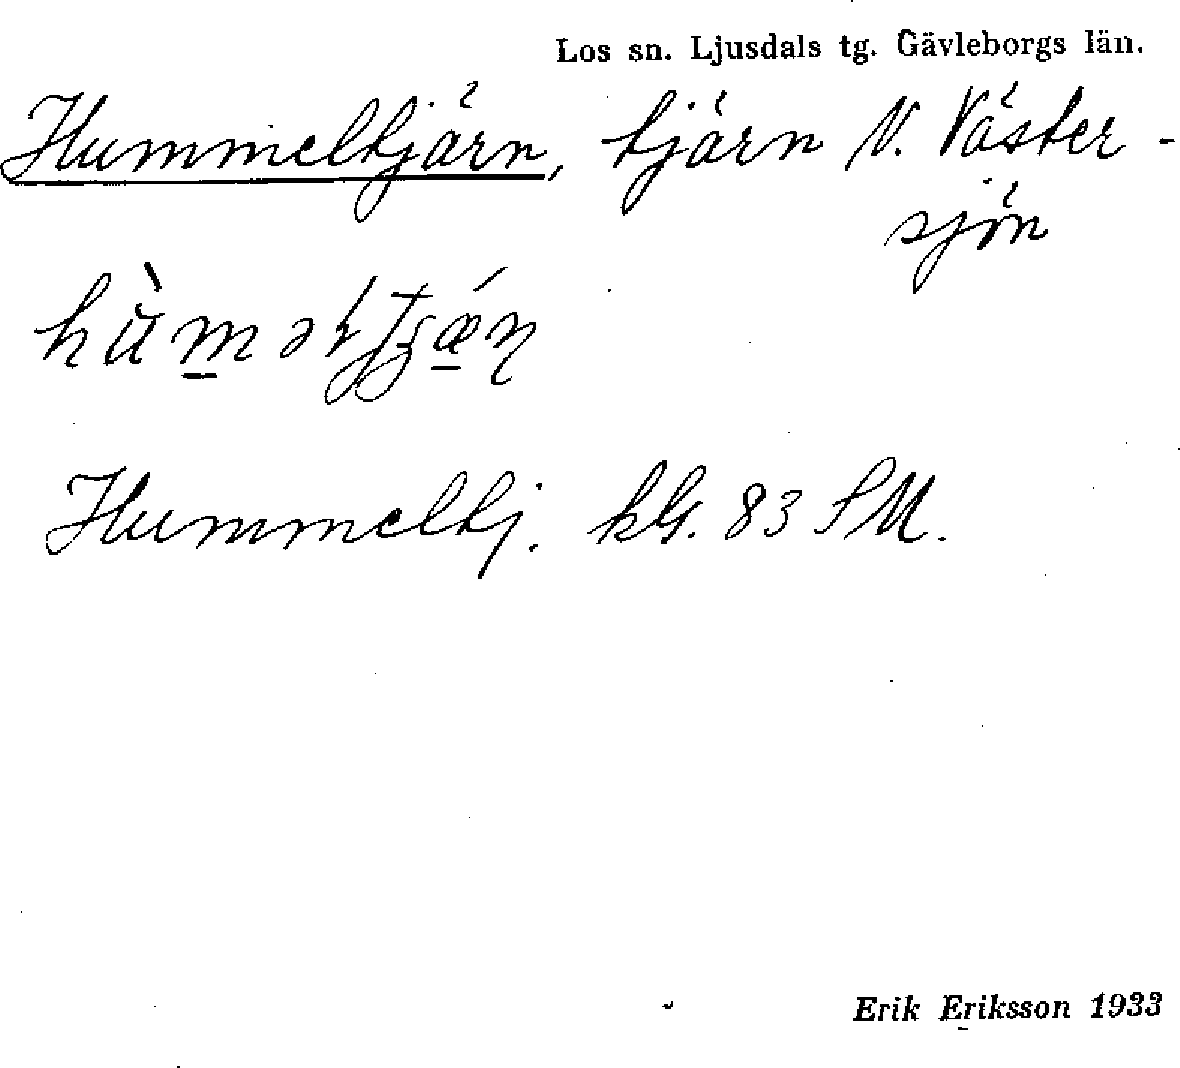 Los sn. Ljusdals tg. Gävleborgs län.
Hummeltjärn, tjärn V. Väster-
sjön
Hummeltj. kbl. 83 SM.
Erik Eriksson 1933